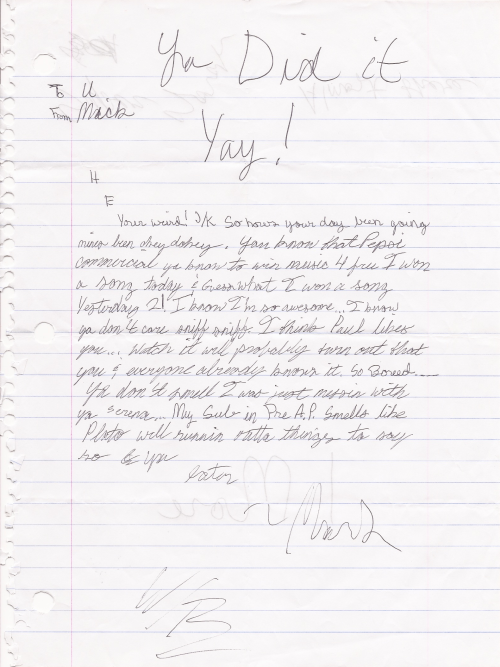 Ya Did it
To U
From Mack
Yay!
H
E
Your weird! J/K So hows your day been going
mines been okey dokey. You know that Pepsi
commercial ya know to win music 4 free I won
a song today & Guess what I won a song
Yesterday 2! I know I'm so awesome... I know
ya don't care sniff sniff. I think Paul likes
you... Watch it will probably turn out that
you & everyone already knows it. So Bored....
Ya don't smell I was just messin with
ya Serena... My Sub in Pre A.P. Smells like
Plato well runnin outta things to say
so C ya
Later
~
W/B